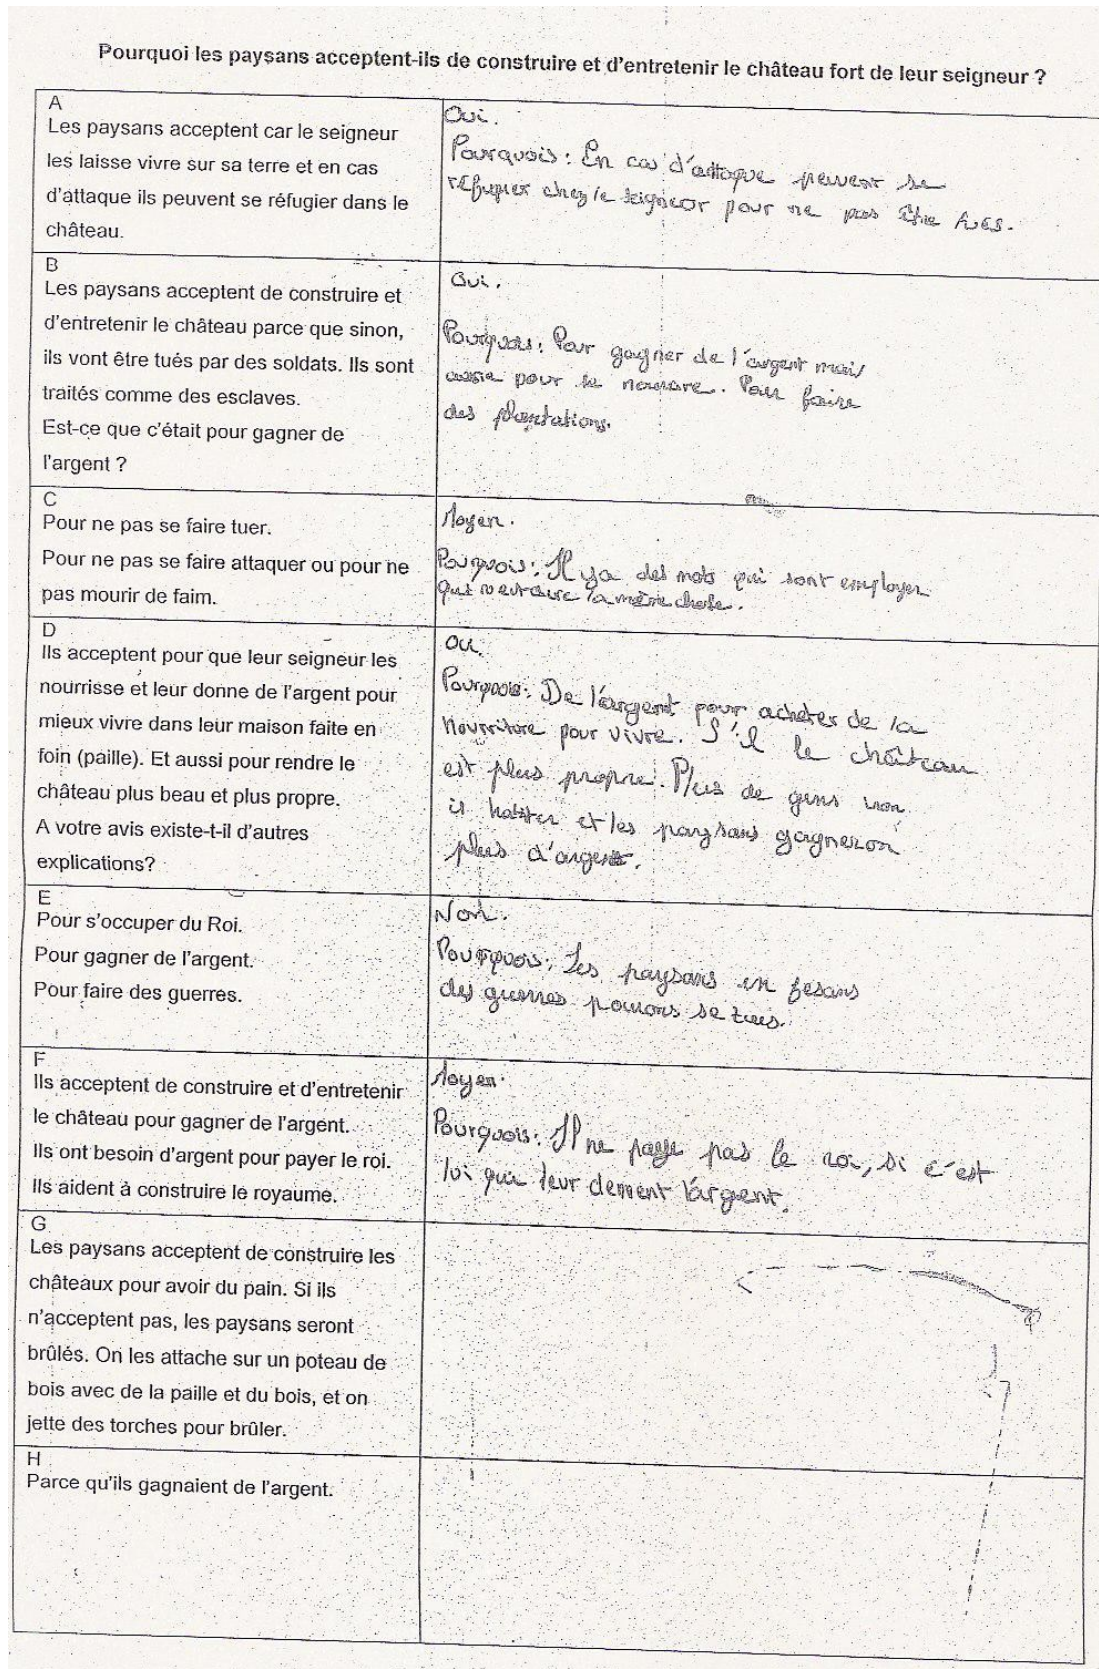 Pourquoi les paysans acceptent-ils de construire et d'entretenir le château fort de leur seigneur ?
A
Les paysans acceptent car le seigneur
les laisse vivre sur sa terre et en cas
d'attaque ils peuvent se réfugier dans le
château.
Oui.
Pourquois : En cas d'attaque peuvent se
réfugier chez le seigneur pour ne pas être tués.
B
Les paysans acceptent de construire et
d'entretenir le château parce que sinon,
ils vont être tués par des soldats. Ils sont
traités comme des esclaves.
Est-ce que c'était pour gagner de
l'argent ?
Oui.
Pourquois : Pour gagner de l'argent mais
pour se. Pour faire
des plantations.
C
Pour ne pas se faire tuer.
Pour ne pas se faire attaquer ou pour ne
pas mourir de faim.
Moyen.
Pourquois : Il y a des mots qui sont employer
qui la même chose.
D
Ils acceptent pour que leur seigneur les
nourrisse et leur donne de l'argent pour
mieux vivre dans leur maison faite en
foin (paille). Et aussi pour rendre le
château plus beau et plus propre.
A votre avis existe-t-il d'autres
explications?
Oui.
Pourquois : De l'argent pour acheter de la
nourriture pour vivre. S'il le château
est plus propre. Plus de gens
et les paysans gagneron
plus d'argent.
E
Pour s'occuper du Roi.
Pour gagner de l'argent.
Pour faire des guerres.
Non.
Pourquois : Les paysans en fesans
des guerres se tués.
F
Ils acceptent de construire et d'entretenir
le château pour gagner de l'argent.
Ils ont besoin d'argent pour payer le roi.
Ils aident à construire le royaume.
Moyen.
Pourquois : Il ne paye pas le roi, si c'est
lui qui leur l'argent.
G
Les paysans acceptent de construire les
châteaux pour avoir du pain. Si ils
n'acceptent pas, les paysans seront
brûlés. On les attache sur un poteau de
bois avec de la paille et du bois, et on
jette des torches pour brûler.
H
Parce qu'ils gagnaient de l'argent.